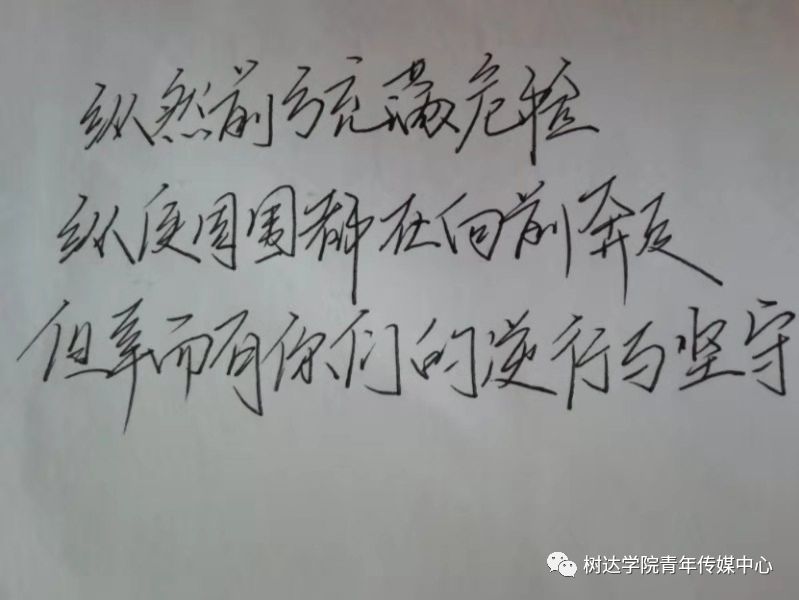 纵然前方充满危险
纵使周围都在向前奔走
但幸而有你们的逆行与坚守
树达学院青年传媒中心